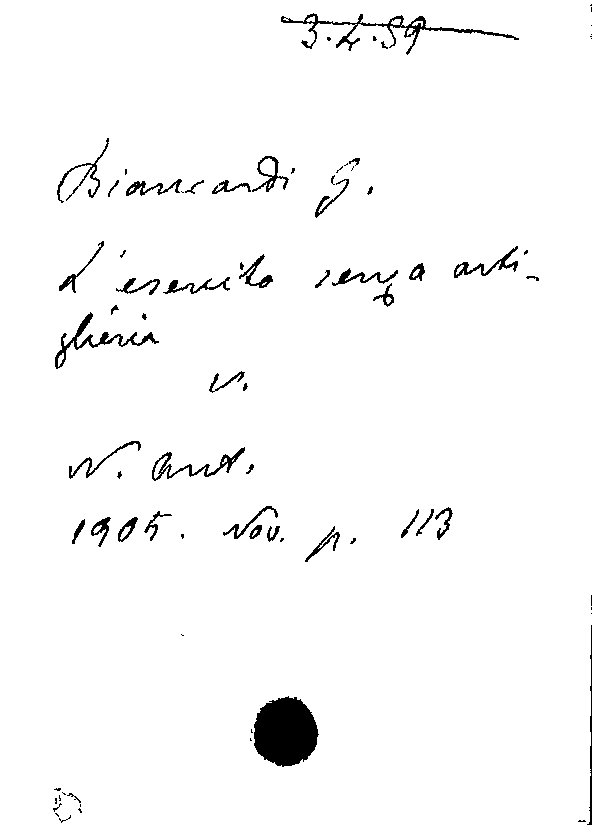 3.4.59
Biancardi G.
L'esercito senza arti-
glieria
v.
N. Ant.
1905. Nov. p. 113